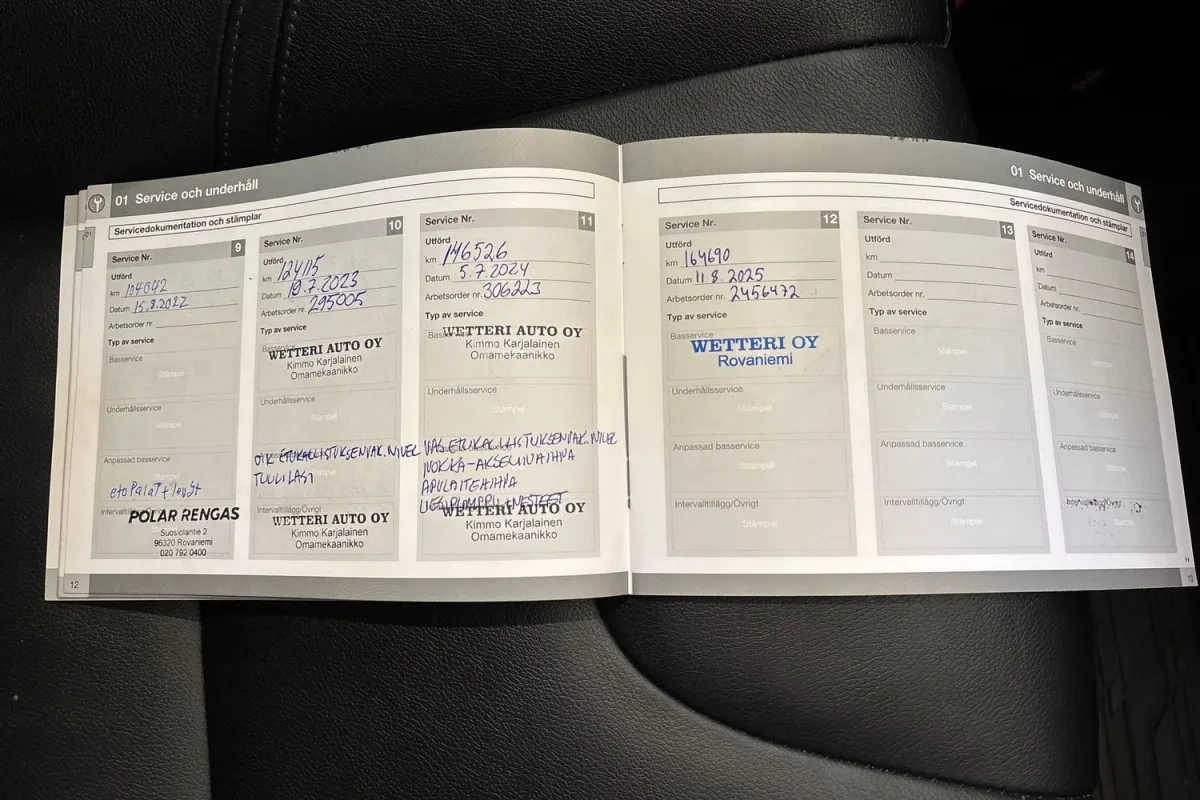 01 Service och underhåll
Servicedokumentation och stämplar
9
Service Nr.
Utförd
km 104042
Datum 15.8.2022
Arbetsorder nr.
Typ av service
Basservice
Stämpel
Underhållsservice
Anpassad basservice
Stämpel
etu Palat + levyt
POLAR RENGAS
Suosiolantie 2
96320 Rovaniemi
020 792 0400
10
Service Nr.
Utförd
km 124115
Datum 19.7.2023
Arbetsorder nr. 295005
Typ av service
Basservice
WETTERI AUTO OY
Kimmo Karjalainen
Omamekaanikko
Underhållsservice
Stämpel
OIK ETUKALLISTUKSENVAK.NIVEL
TUULILASI
Intervalltillägg/Övrigt
WETTERI AUTO OY
Kimmo Karjalainen
Omamekaanikko
11
Service Nr.
Utförd
km 146526
Datum 5.7.2024
Arbetsorder nr. 306223
Typ av service
WETTERI AUTO OY
Kimmo Karjalainen
Omamekaanikko
Underhållsservice
Stämpel
VAS ETUKALLISTUKSENVAK.NIVEL
NOKKA-AKSELIN VAIHNA
APULAITEHIHNA
VESIPUMPPU + NESTEET
WETTERI AUTO OY
Kimmo Karjalainen
Omamekaanikko
12
01 Service och underhåll
Servicedokumentation och stämplar
12
Service Nr.
Utförd
km 164690
Datum 11.8.2025
Arbetsorder nr. 2456472
Typ av service
Basservice
WETTERI OY
Rovaniemi
Underhållsservice
Stämpel
Anpassad basservice
Stämpel
Intervalltillägg/Övrigt
Stämpel
13
Service Nr.
Utförd
km
Datum
Arbetsorder nr.
Typ av service
Basservice
Stämpel
Underhållsservice
Stämpel
Anpassad basservice
Stämpel
Intervalltillägg/Övrigt
Stämpel
14
Service Nr.
Utförd
km
Datum
Arbetsorder nr.
Typ av service
Basservice
Stämpel
Underhållsservice
Stämpel
Anpassad basservice
Stämpel
Intervalltillägg/Övrigt
Stämpel
13